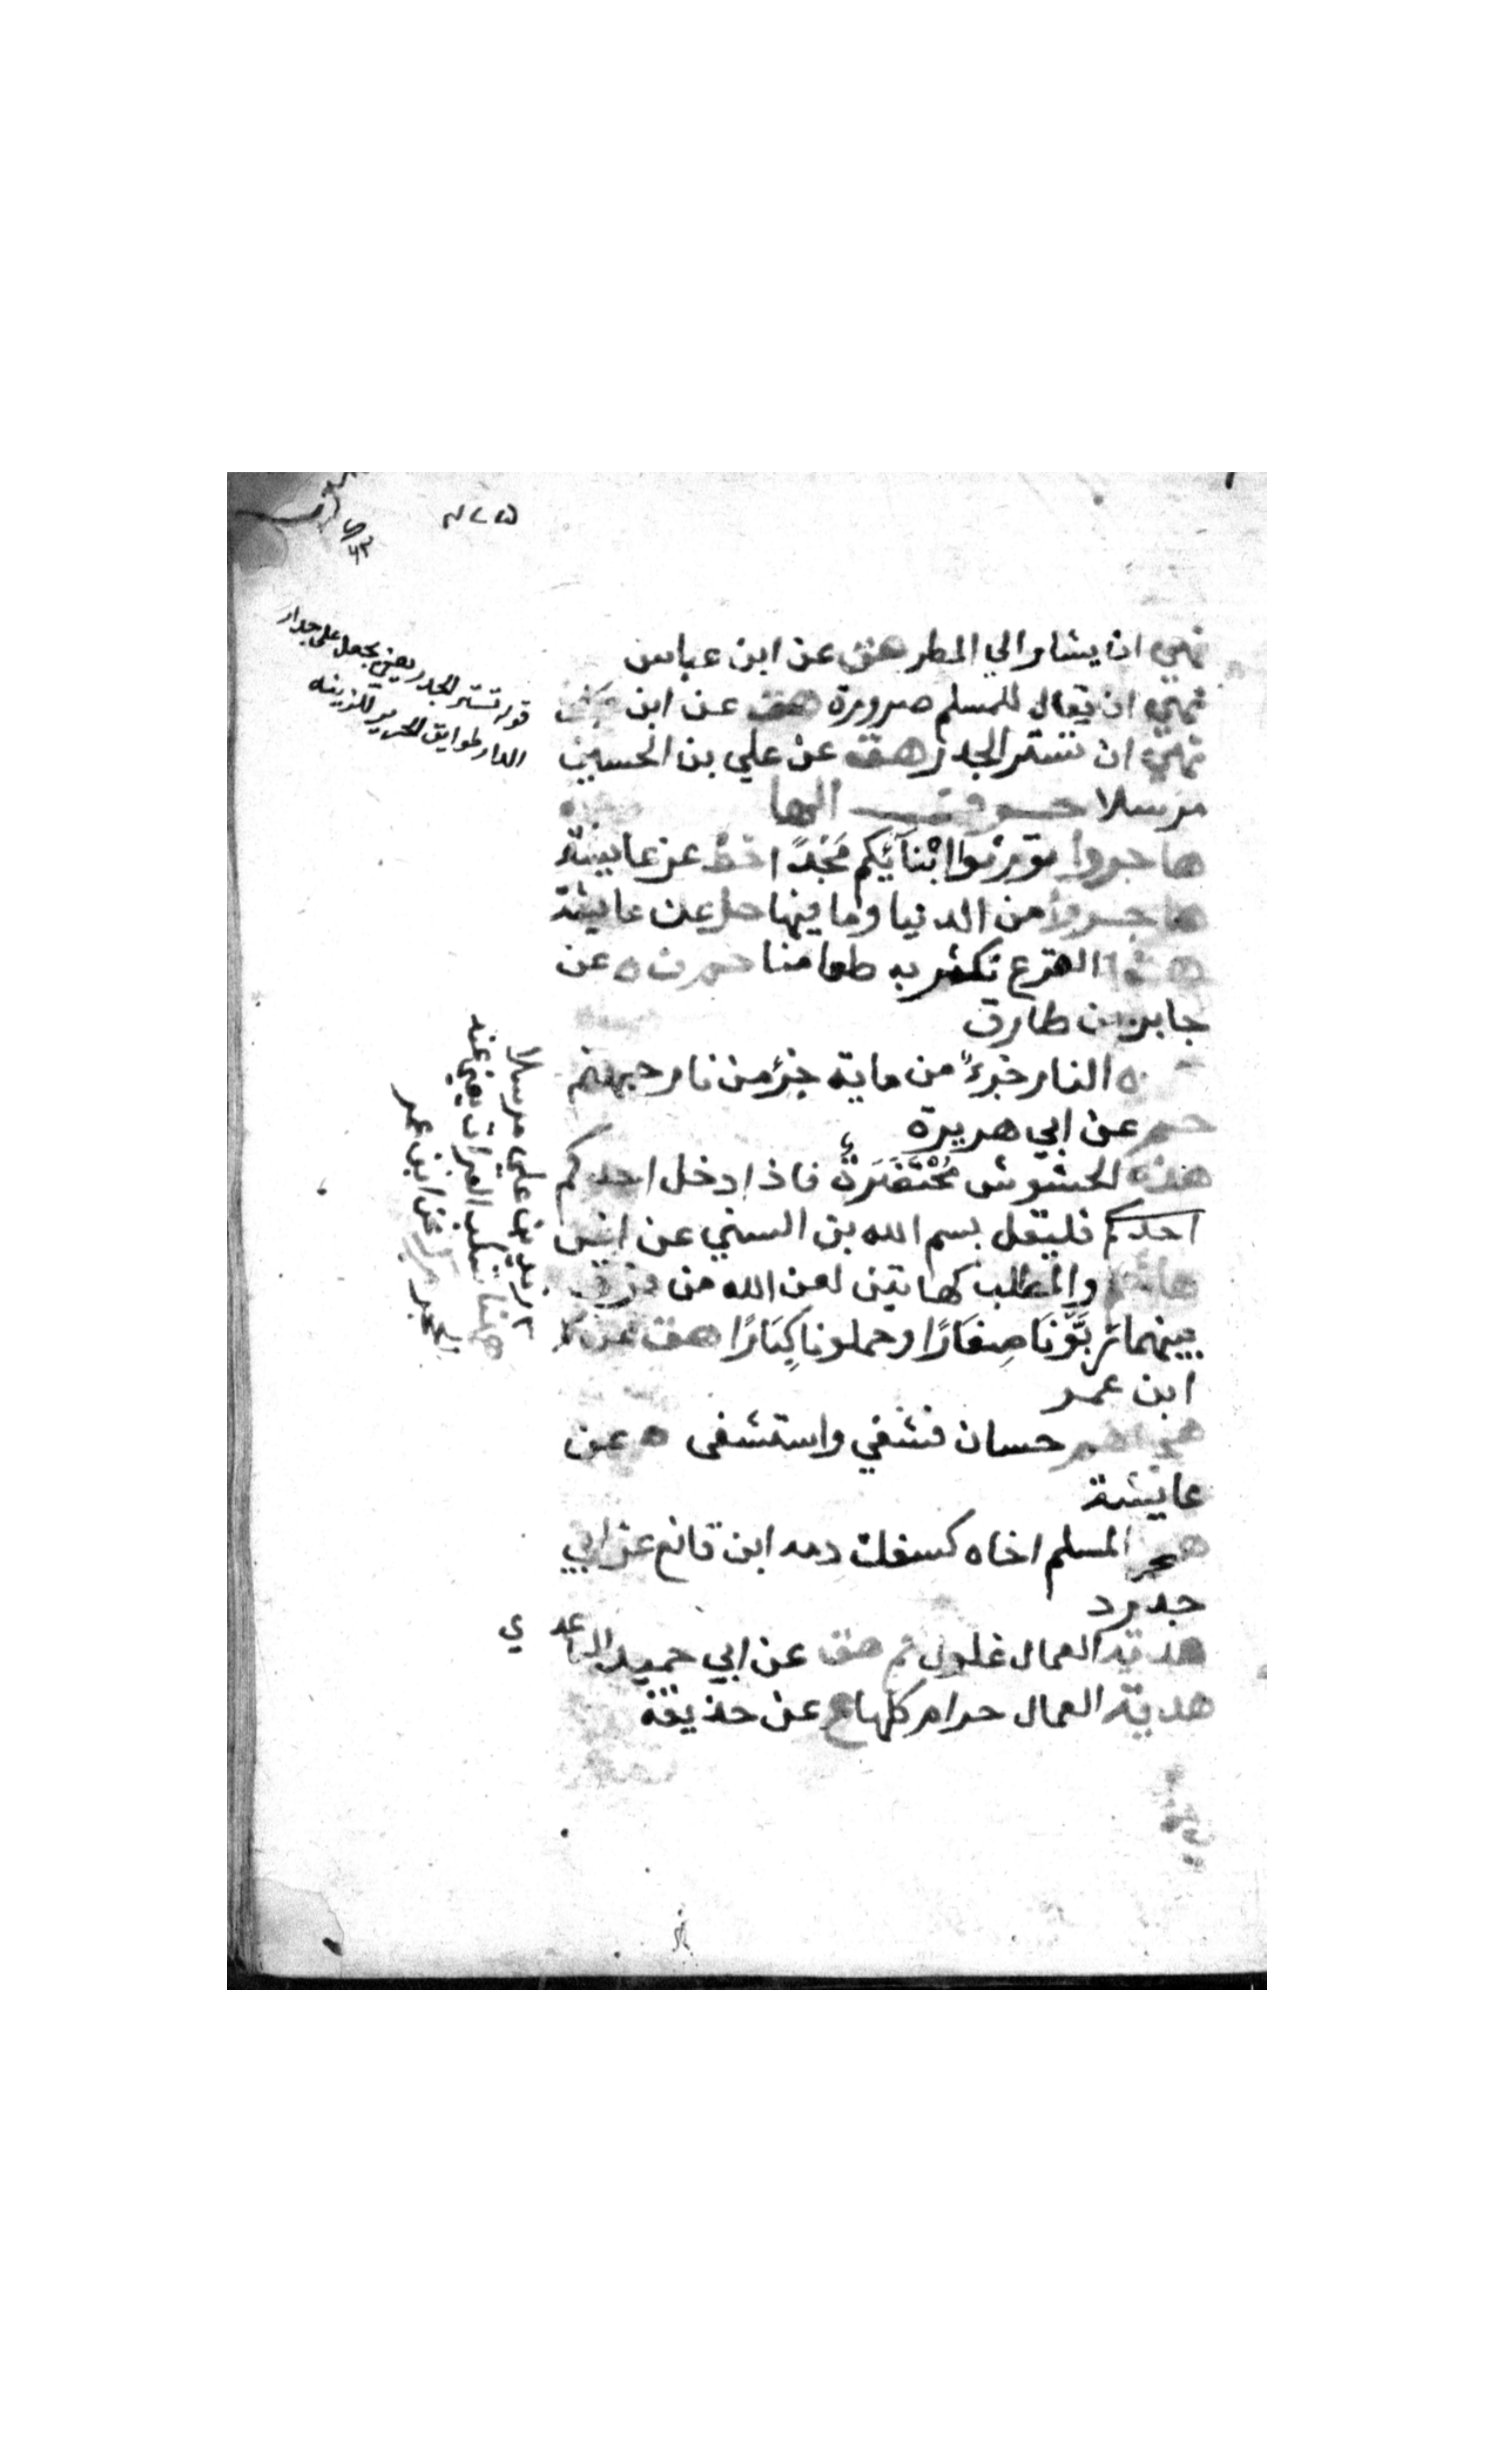 نهي ان يشار الي المطر هق عن ابن عباس
نهي ان يقال للمسلم صرورة هق عن ابن
نهي ان تستر الجدر هق عن علي بن الحسين
مرسلا حرف الها
هاجروا تورثوا ابْنَآئكم مَجْدًا خط عن عايشة
هاجروا من الدنيا وما فيها حل عن عايشة
القرع نكثر به طعامنا حم ن ه عن
جابر بن طارق
النار جزءٌ من ماية جزء من نار جهنم
حم عن ابي هريرة
هذه الحشوش مُحْتَضَرَةٌ فاذا دخل احدكم
احدكم فليقل بسم الله بن السني عن انس
هاشم والمطلب كهاتين لعن الله من فرق
بينهما رَبَّوْنَا صِغَارًا وحملونا كِبَارًا هق عن
ابن عمر
هجاهم حسان فشفي واستشفى م عن
عايشة
هجر المسلم اخاه كسفك دمه ابن قانع عن ابي
حدرد
هدية العمال غلول حم هق عن ابي حميد الساعدي
هدية العمال حرام كلها ع عن حذيفة
قوله تستر الجدر يعني يجعل على جدار
الدار طوايق الحرير للزينه
زيد بن علي مرسلا
هاهنا تسكب العبرات يعني عند
الحجر عن ابن عمر